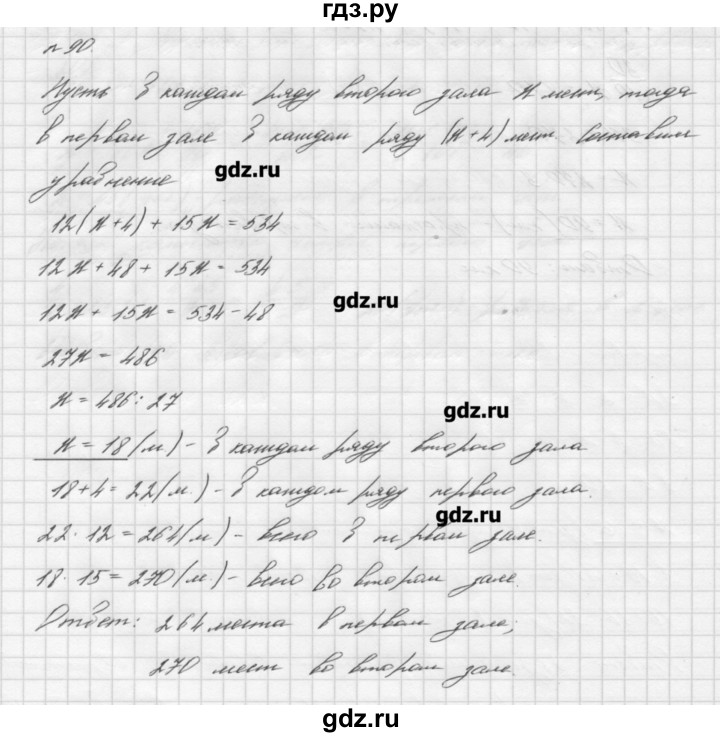 гдз.ру
№ 90.
Пусть в каждом ряду второго зала x мест, тогда
в первом зале в каждом ряду (x+4) мест. Составим
уравнение
gdz.ru
12(x+4) + 15x = 534
12x + 48 + 15x = 534
gdz.ru
12x + 15x = 534 - 48
27x = 486
x = 486 : 27
gdz.ru
x = 18 (м.) - в каждом ряду второго зала
18 + 4 = 22 (м.) - в каждом ряду первого зала.
gdz.ru
22 · 12 = 264 (м.) - всего в первом зале.
18 · 15 = 270 (м.) - всего во втором зале.
Ответ: 264 места в первом зале;
270 мест во втором зале.
gdz.ru